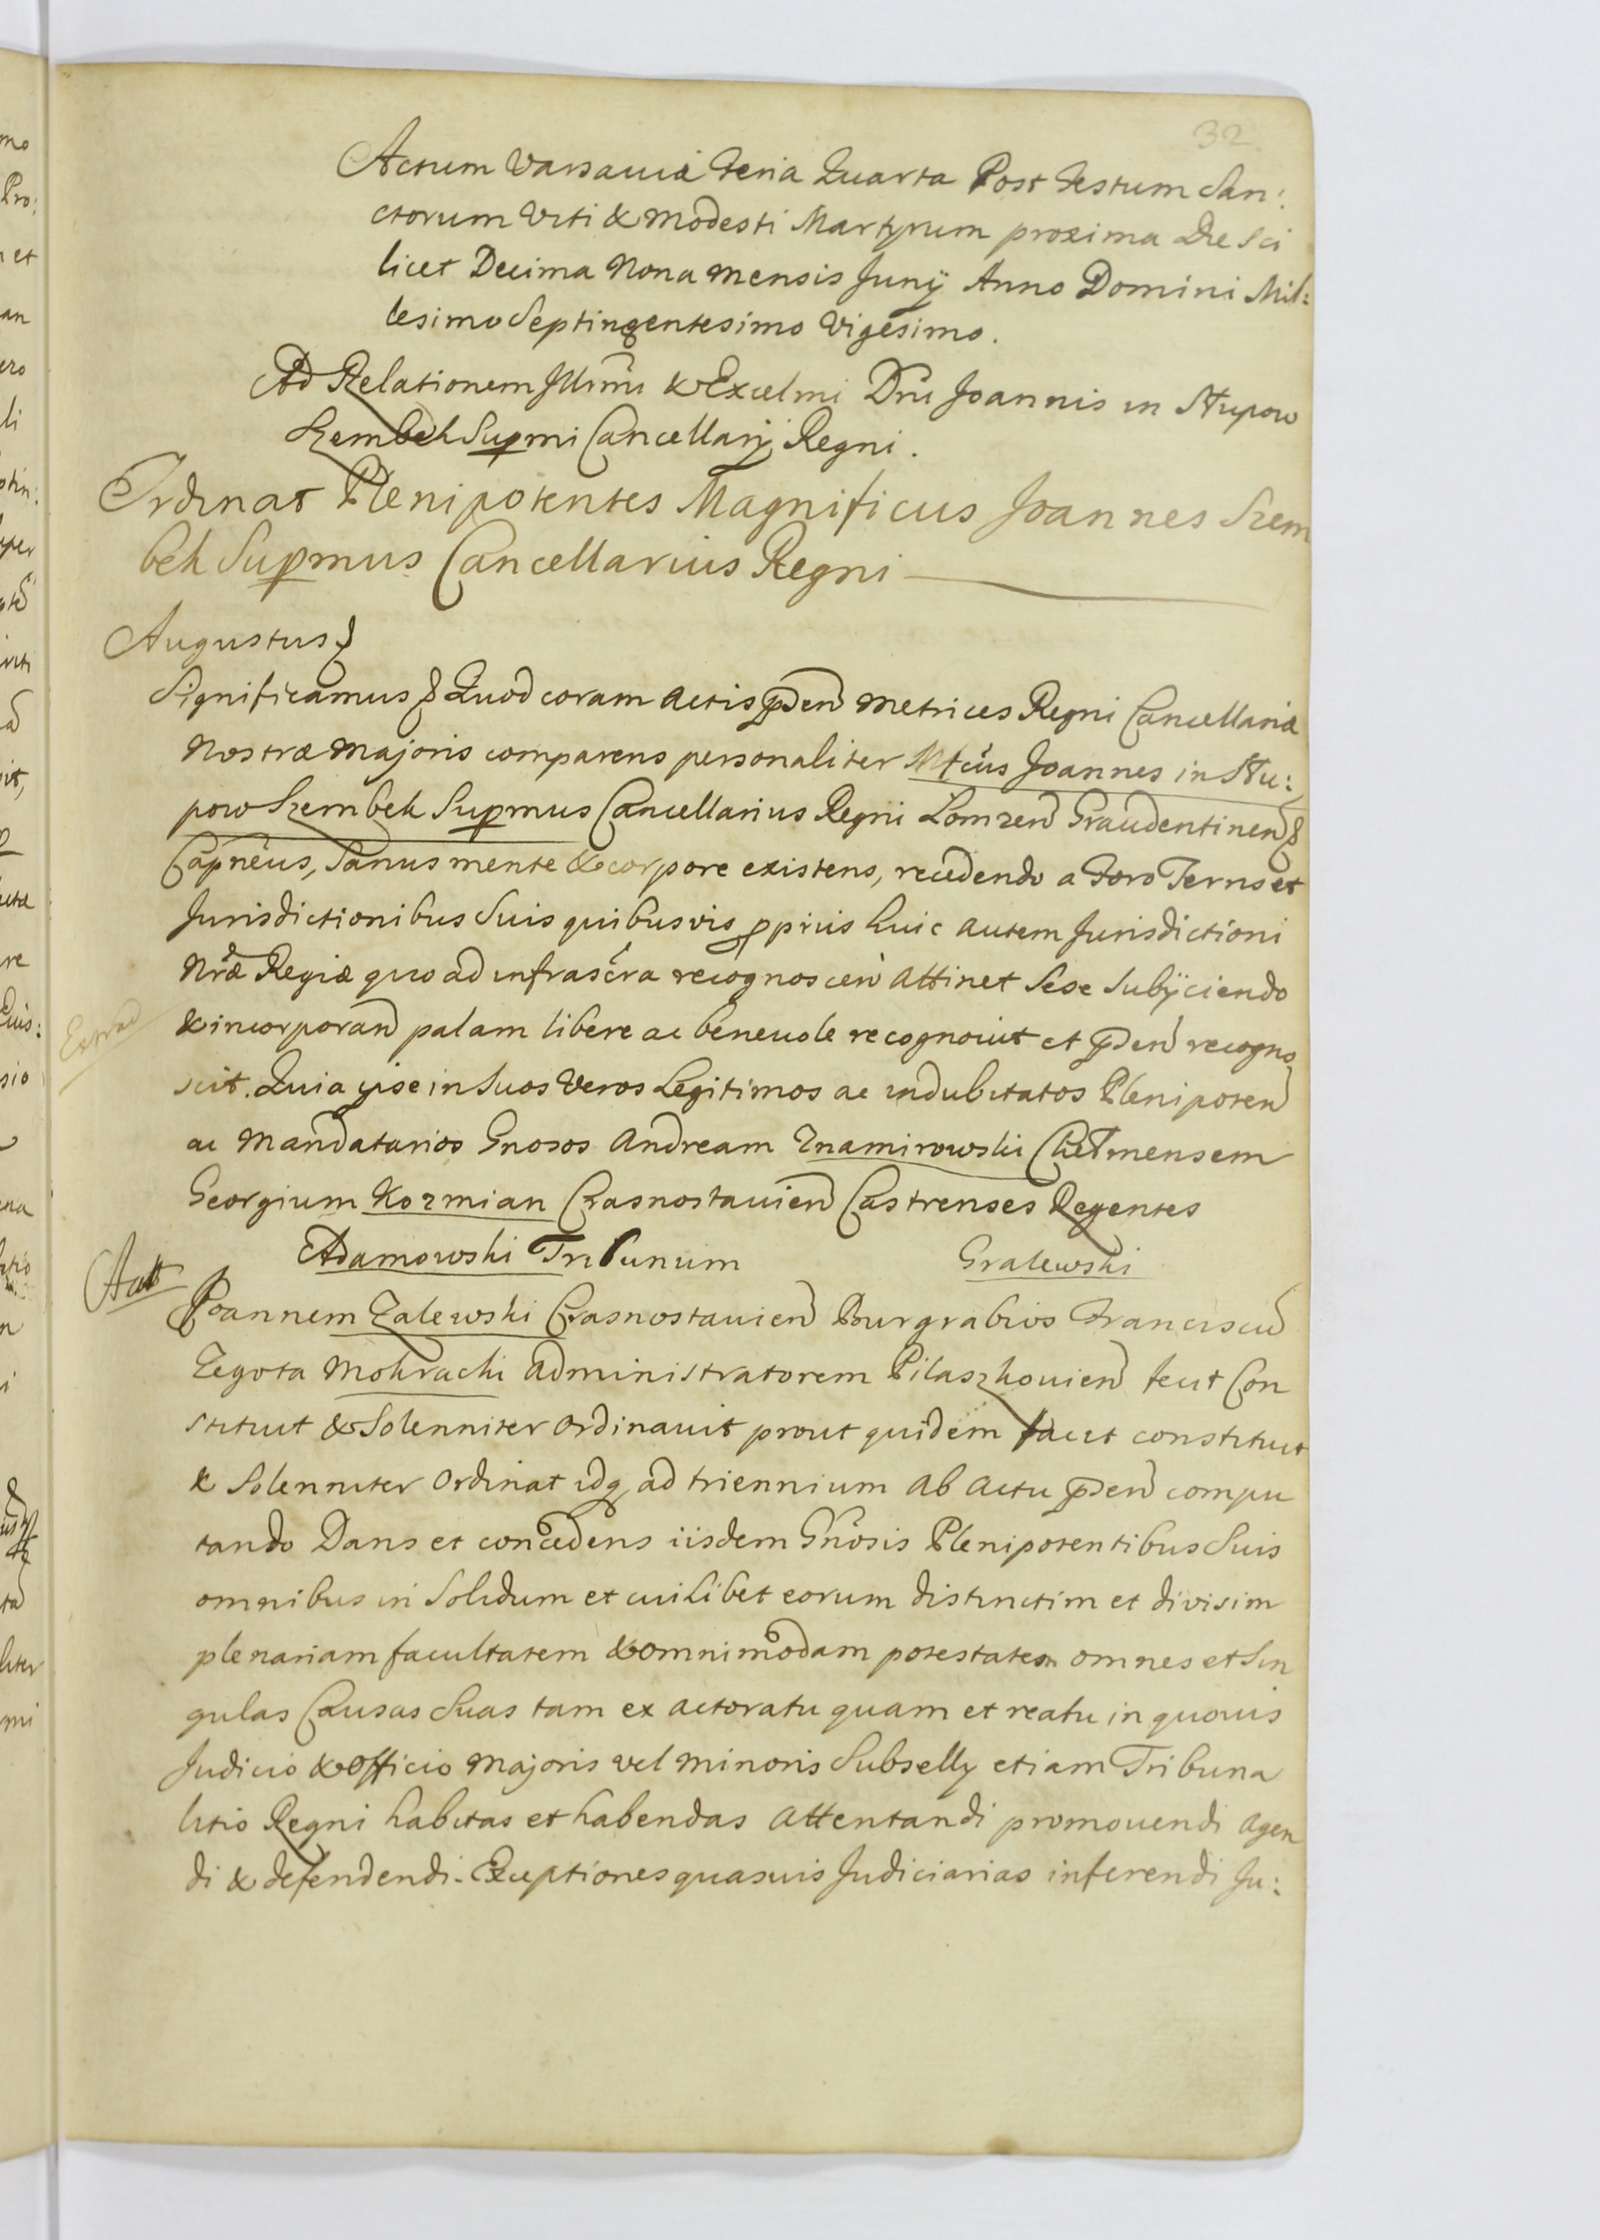 32
Actum Varsaviæ Feria Quarta Post Festum San:
ctorum Viti & Modesti Martyrum proxima Die Sci
licet Decima Nona Mensis Junÿ Anno Domini Mil:
lesimo Septingentesimo Vigesimo.
Ad Relationem Illmi & Excelmi Dni Joannis in Słupow
Szembek Supmi Cancellarÿ Regni.
Ordinat Plenipotentes Magnificus Joannes Szem
bek Supmus Cancellarius Regni
Augustus
Significamus Quod coram Actis pden Metrices Regni Cancellariæ
Nostræ Majoris comparens personaliter Mfcus Joannes in Słu:
pow Szembek Supmus Cancellarius Regni Lomzen Graudentinen
Capneus, Sanus mente & corpore existens, recedendo a Foro Terris et
Jurisdictionibus Suis quibusvis ppriis huic autem Jurisdictioni
Nræ Regiæ quo ad infrascra recognoscen attinet Sese Subÿciendo
& incorporand palam libere ac benevole recognovit et pden recogno
scit. Quia ipse in Suos Veros Legitimos ac indubitatos Plenipoten
ac Mandatarios Gnosos Andream Znamirowski Chełmensem
Georgium Kozmian Crasnostavien Castrenses Regentes
Adamowski Tribunum Gralewski
Joannem Zalewski Crasnostavien Burgrabios Franciscu
Zegota Mokracki Administratorem Pilaszkovien fecit Con
stituit & Solenniter Ordinavit prout quidem facit constituit
& Solenniter Ordinat idq ad triennium ab actu pden compu
tando Dans et concedens iisdem Gnosis Plenipotentibus Suis
omnibus in Solidum et cuilibet eorum distinctim et divisim
plenariam facultatem & omnimodam potestatem omnes et Sin
gulas Causas Suas tam ex actoratu quam et reatu in quovis
Judicio & Officio Majoris vel Minoris Subselly etiam Tribuna
litio Regni habitas et habendas Attentandi promovendi agen
di & defendendi. Exceptiones quasvis Judiciarias inferendi Ju: